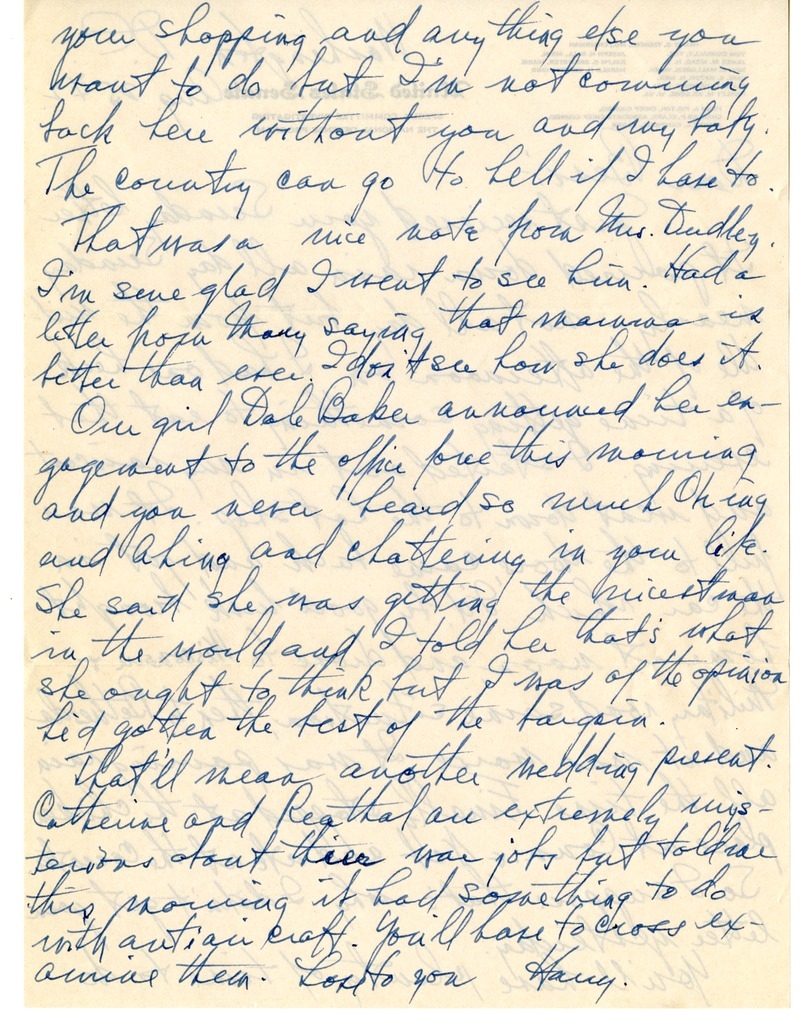 your shopping and anything else you
want to do but I'm not comming
back here without you and my baby.
The country can go to hell if I have to.
That was a nice note from Mrs. Dudley.
I'm sure glad I went to see him. Had a
letter from Mary saying that mamma is
better than ever. I don't see how she does it.
Our girl Dale Baker announced her en-
gagement to the office force this morning
and you never heard so much Ohing
and Ahing and chattering in your life.
She said she was getting the nicest man
in the world and I told her that's what
she ought to think but I was of the opinion
he'd gotten the best of the bargain.
That'll mean another wedding present.
Catherine and Reathal are extremely mys-
terious about their war jobs but told me
this morning it had something to do
with antiair craft. You'll have to cross ex-
amine them. Love to you Harry.